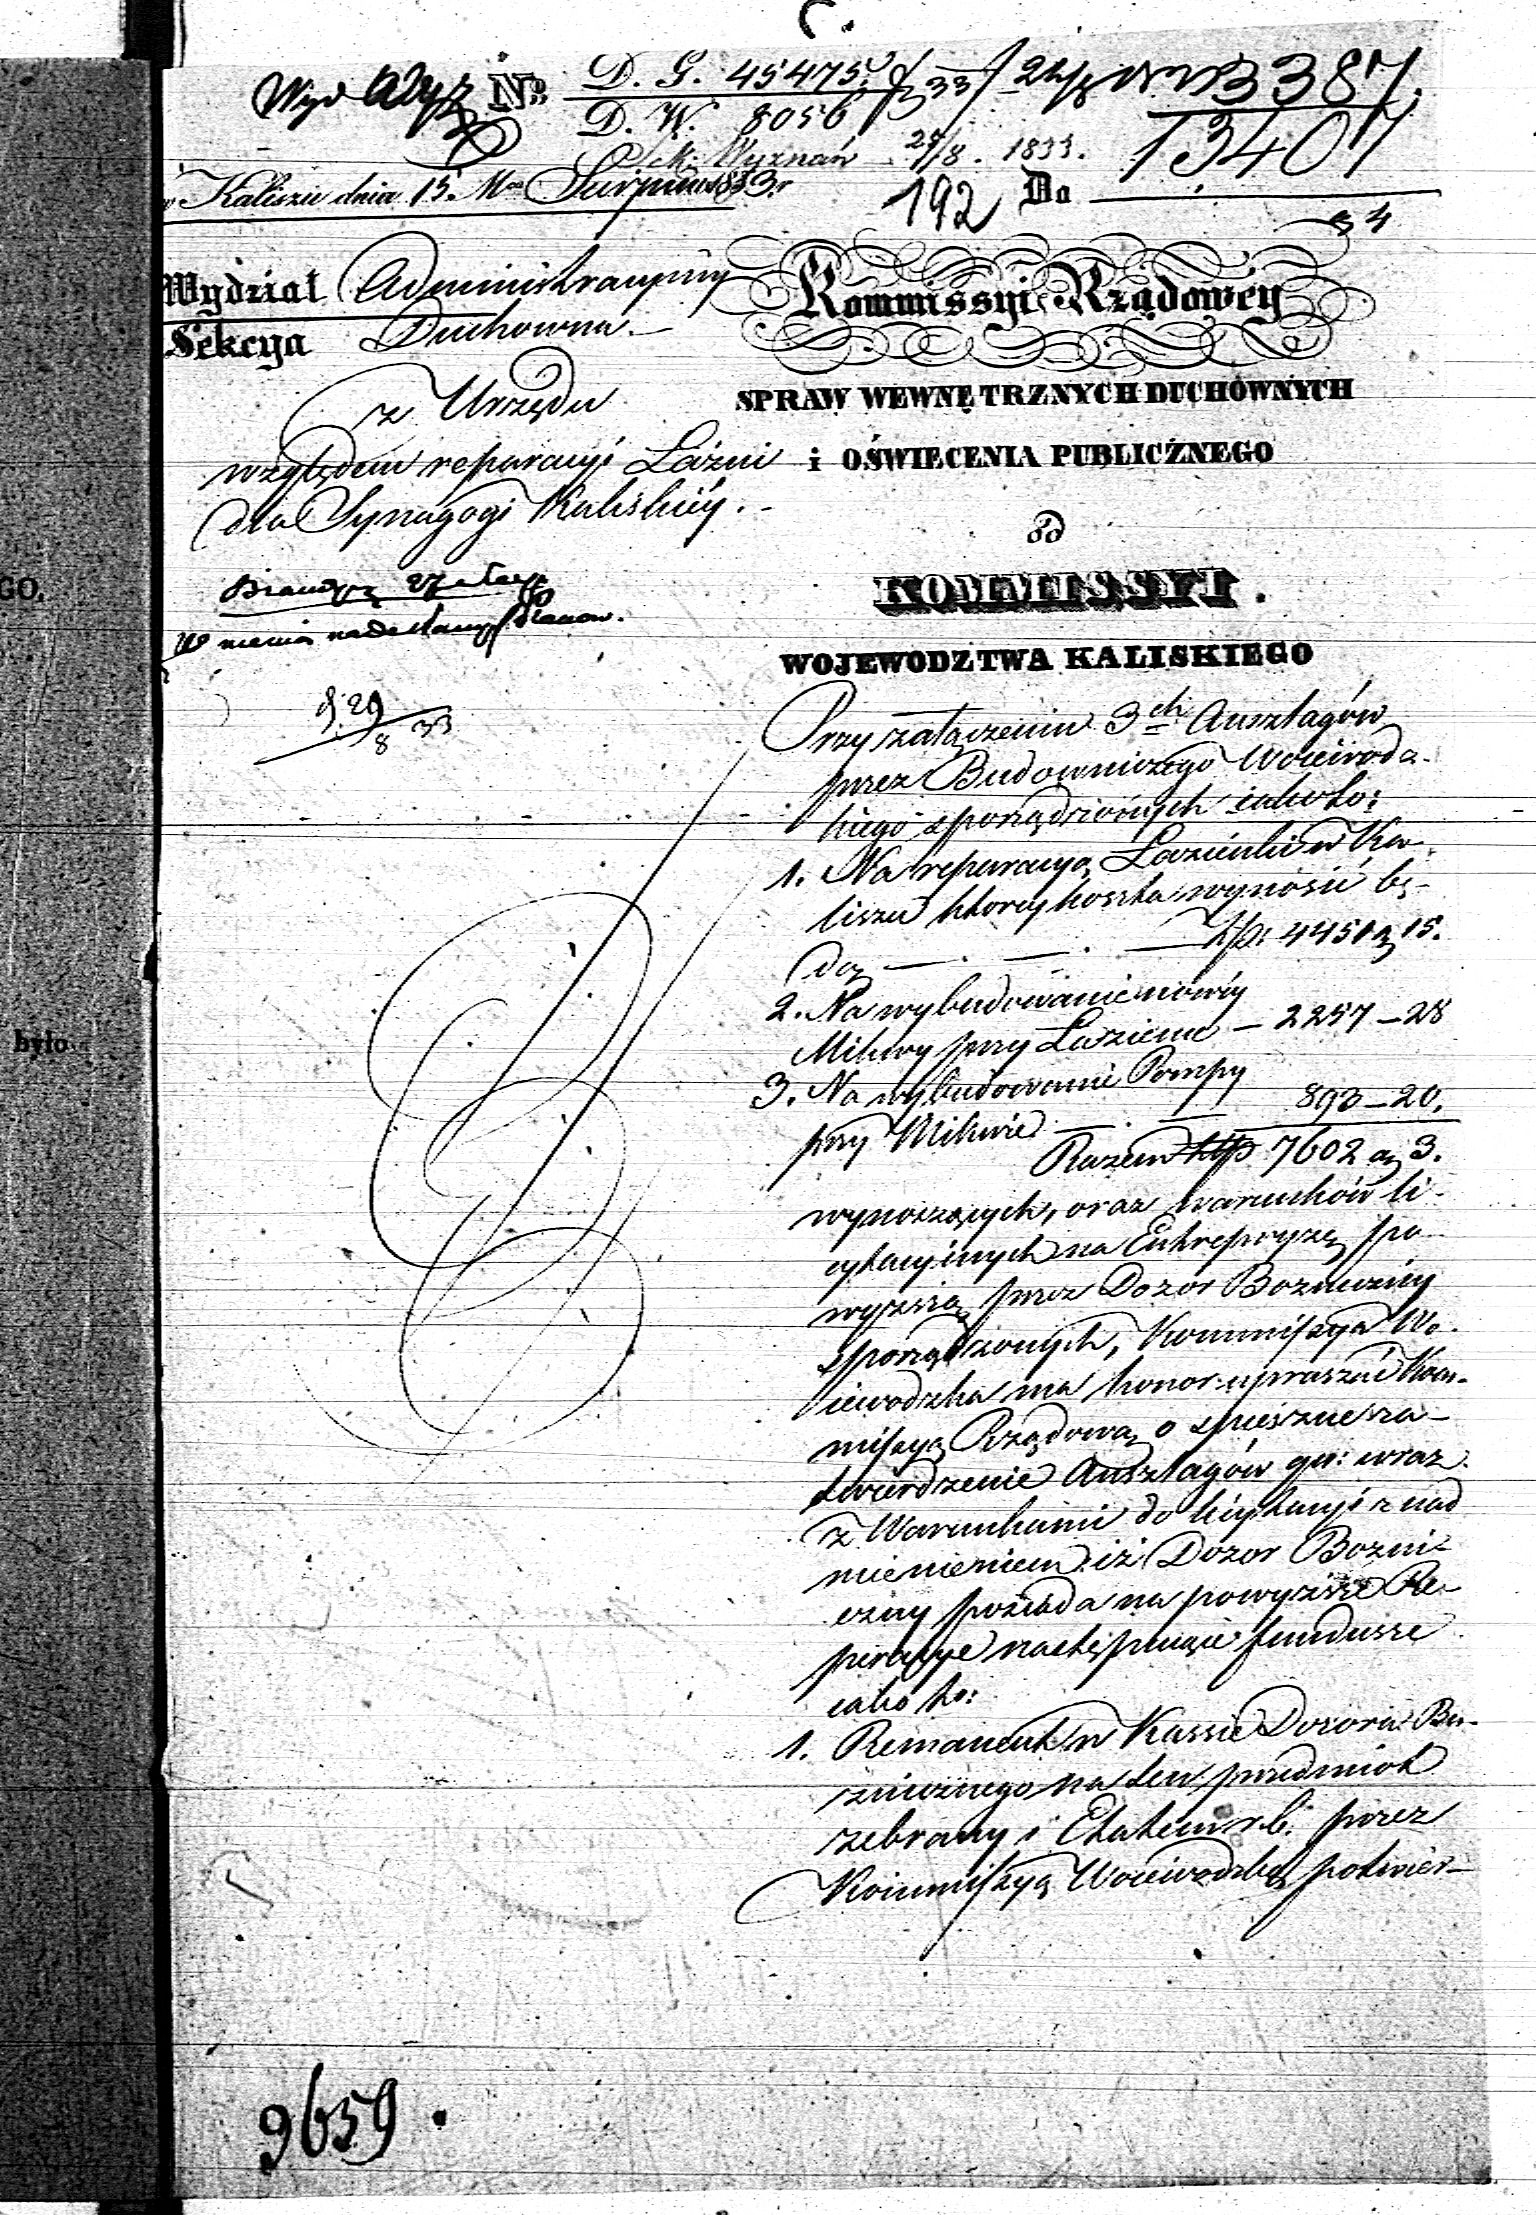 Wyd
No. D. G. 45475.
D. W. 8056
Sek: Wyznań 24/8. 1833.
387.
13407
w Kaliszu dnia 15. Mca Sierpnia 1833.r
192 Do
34
Wydział Administracyiny
Sekcya Duchowna.
z Urzędu
względem reparacyi Łaźni
dla Synagogi Kaliskiéy.
W niemia nadesłanych Planow.
d. 29/8 33
Kommissyi Rządowéy
SPRAW WEWNĘTRZNYCH DUCHOWNYCH
i OŚWIECENIA PUBLICZNEGO
od
KOMMISSYI.
WOJEWODZTWA KALISKIEGO
Przy załączeniu 3ch Anszlagów
przez Budowniczego Woiewodz-
kiego sporządzionych iakoto:
1. Na reparacyą Łazienki w Ka-
liszu ktorey koszta wynosić bę-
dą Złp: 4450 g 15.
2. Na wybudowanie nowéy
Mikwy przy Łazience — 2257 — 28
3. Na wybudowanie Pompy
przy Mikwie 893 — 20.
Razem złp 7602 g 3.
wynoszących, oraz warunków li-
cytacyinych na Entrepryzę po-
wyższą przez Dozór Bozniczny
sporządzonych, Kommissya Wo-
iewodzka ma honor upraszać Kom-
missyą Rządową o spieszne za-
twierdzenie Anszlagów qu: wraz
z Warunkami do licytacyi z nad
mienieniem iż Dozor Bozni-
czny posiada na powyższe Re-
peracye następuiące fundusze
iako to:
1. Remanent w Kassie Dozoru Bo-
znicznego na ten przedmiot
zebrany i Etatem r.b. przez
Kommissyą Woiewodzką potwier-
9659.
GO.
było